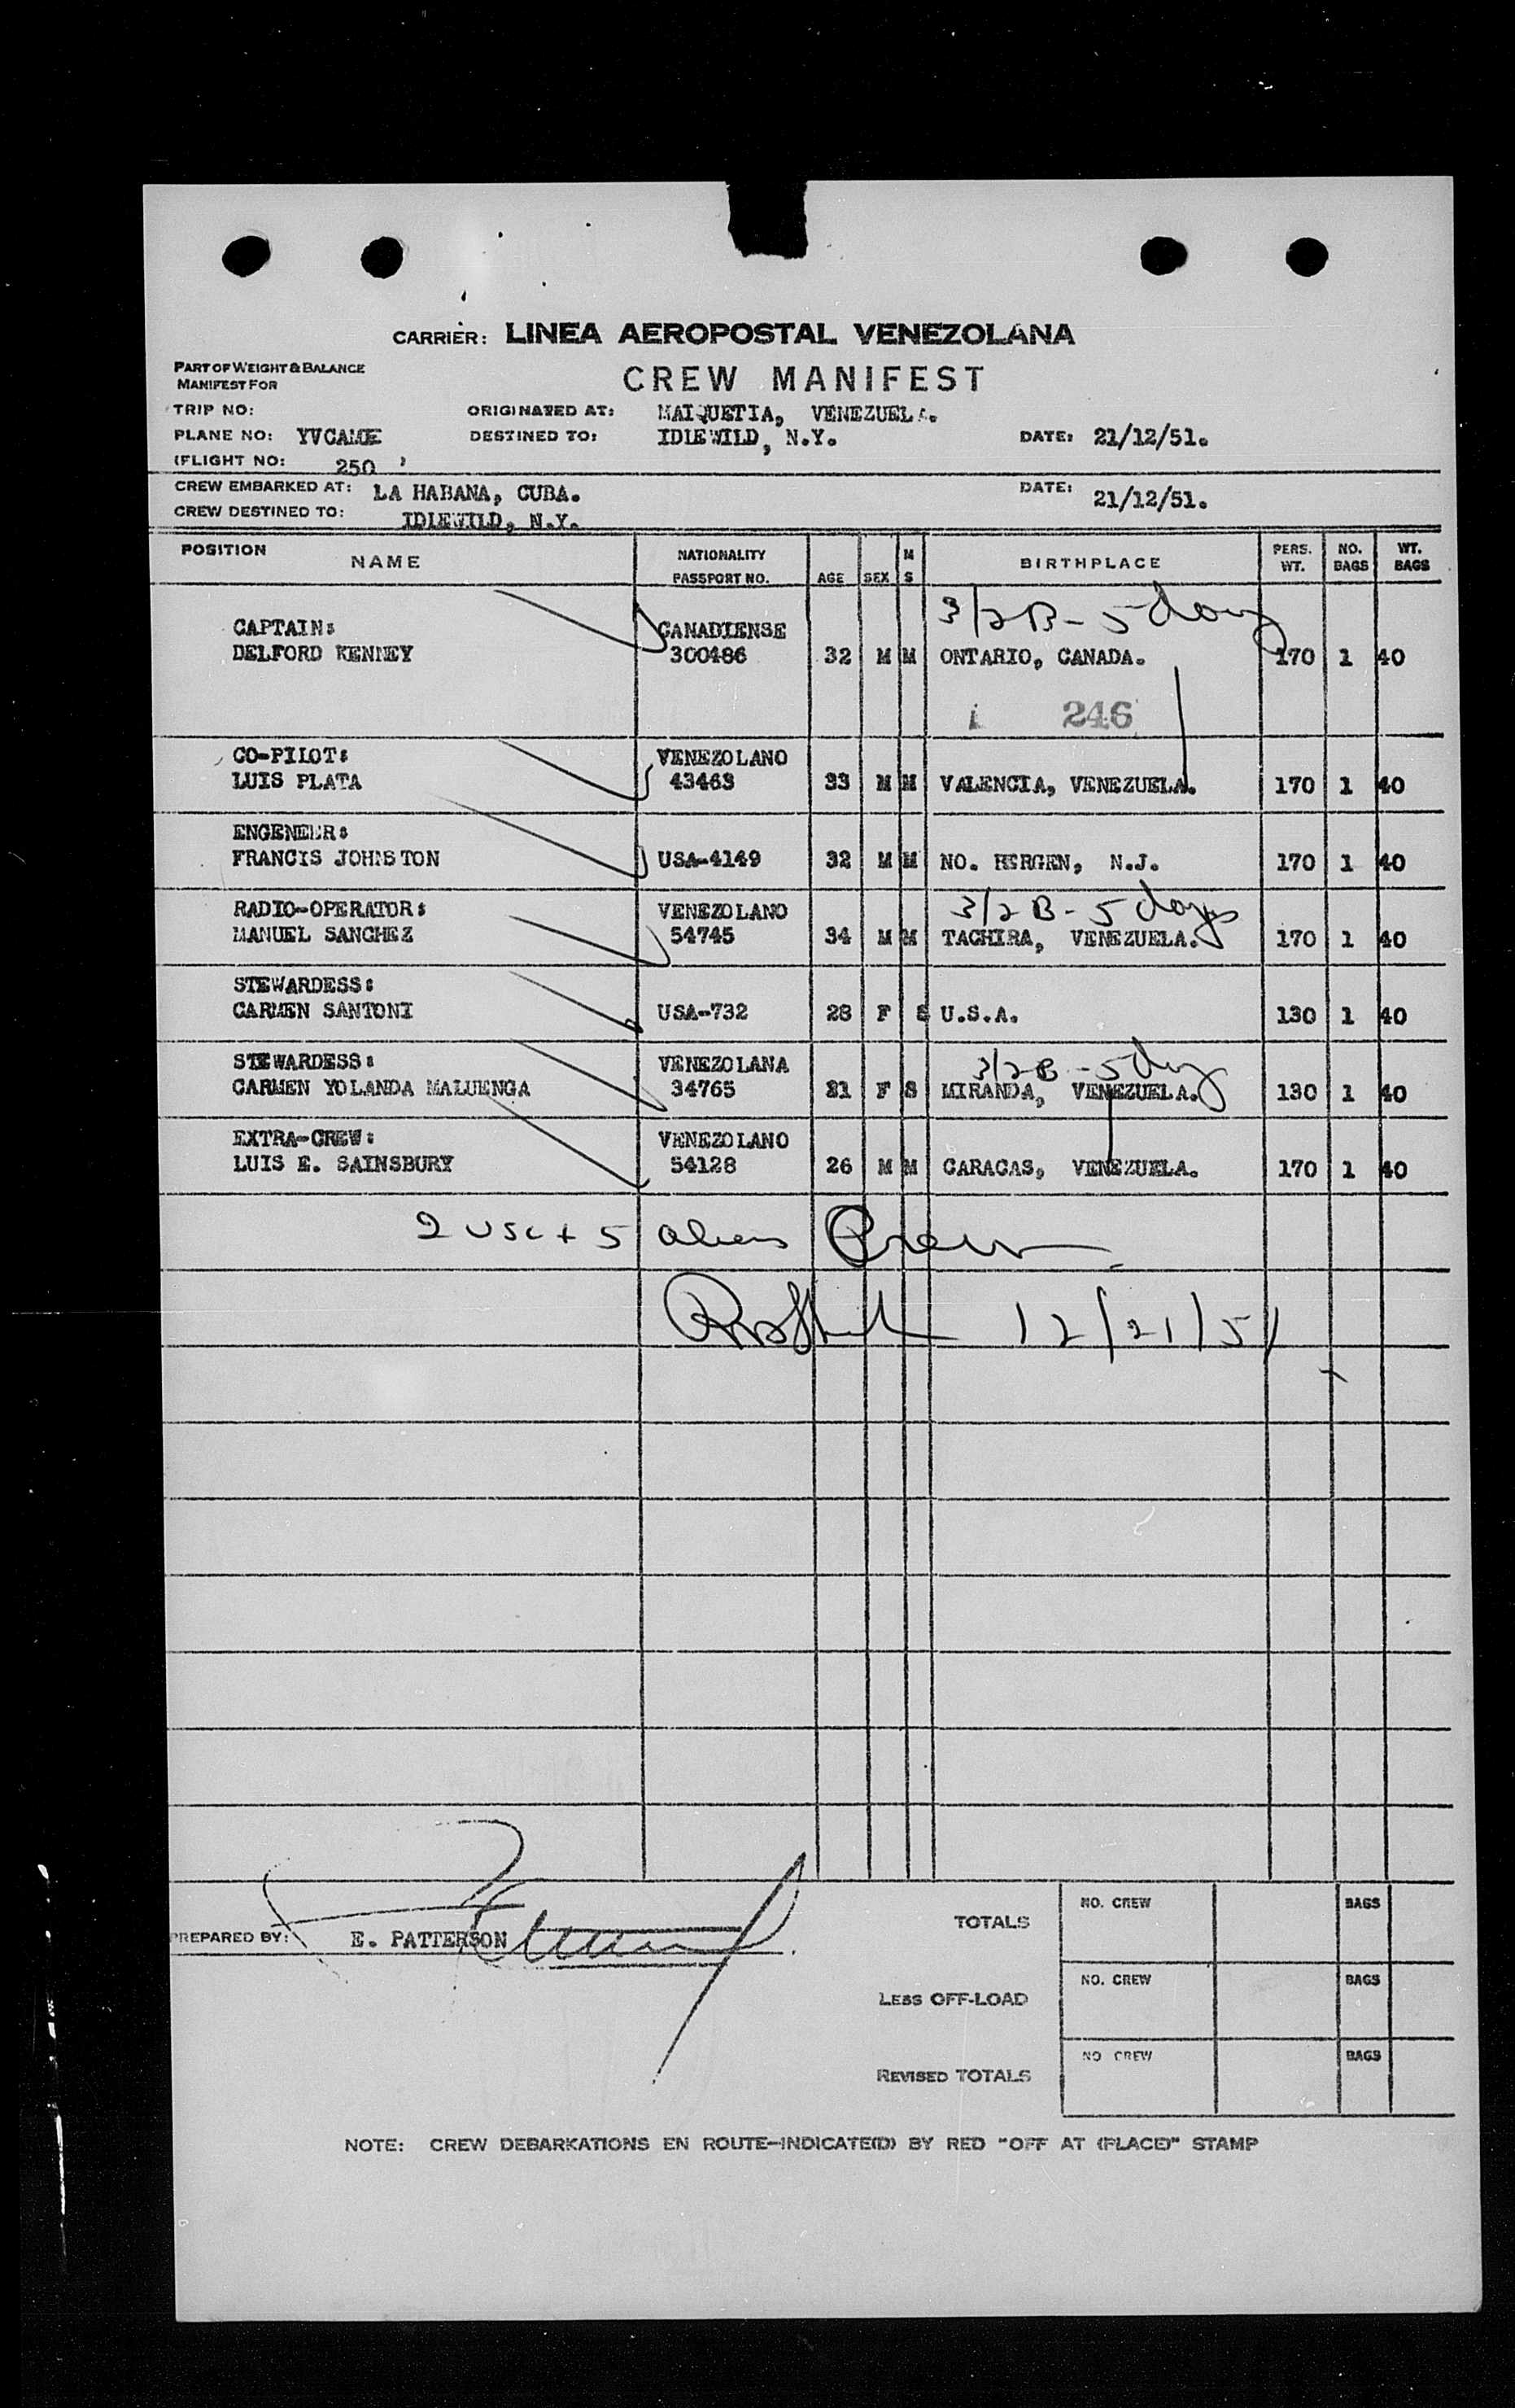 CARRIER: LINEA AEROPOSTAL VENEZOLANA
PART OF WEIGHT & BALANCE
MANIFEST FOR
CREW MANIFEST
TRIP NO:
ORIGINATED AT: MAIQUETIA, VENEZUELA.
PLANE NO: YVCAME
DESTINED TO: IDLEWILD, N.Y.
DATE: 21/12/51.
(FLIGHT NO: 250 )
CREW EMBARKED AT: LA HABANA, CUBA.
DATE: 21/12/51.
CREW DESTINED TO: IDLEWILD, N.Y.
POSITION NAME NATIONALITY PASSPORT NO. AGE SEX M S BIRTHPLACE PERS. WT. NO. BAGS WT. BAGS
3/2B - 5 days
CAPTAIN: CANADIENSE
DELFORD KENNEY 300486 32 M M ONTARIO, CANADA. 170 1 40
246
CO-PILOT: VENEZOLANO
LUIS PLATA 43463 33 M M VALENCIA, VENEZUELA. 170 1 40
ENGENEER:
FRANCIS JOHNSTON USA-4149 32 M M NO. BERGEN, N.J. 170 1 40
RADIO-OPERATOR: VENEZOLANO 3/2B - 5 days
MANUEL SANCHEZ 54745 34 M M TACHIRA, VENEZUELA. 170 1 40
STEWARDESS:
CARMEN SANTONI USA-732 28 F S U.S.A. 130 1 40
STEWARDESS: VENEZOLANA 3/2B - 5 day
CARMEN YOLANDA MALUENGA 34765 21 F S MIRANDA, VENEZUELA. 130 1 40
EXTRA-CREW: VENEZOLANO
LUIS E. SAINSBURY 54128 26 M M CARACAS, VENEZUELA. 170 1 40
2 USC + 5 aliens Crew
12/21/51
PREPARED BY: E. PATTERSON
TOTALS NO. CREW BAGS
LESS OFF-LOAD NO. CREW BAGS
REVISED TOTALS NO CREW BAGS
NOTE: CREW DEBARKATIONS EN ROUTE—INDICATE(D) BY RED "OFF AT (PLACE)" STAMP